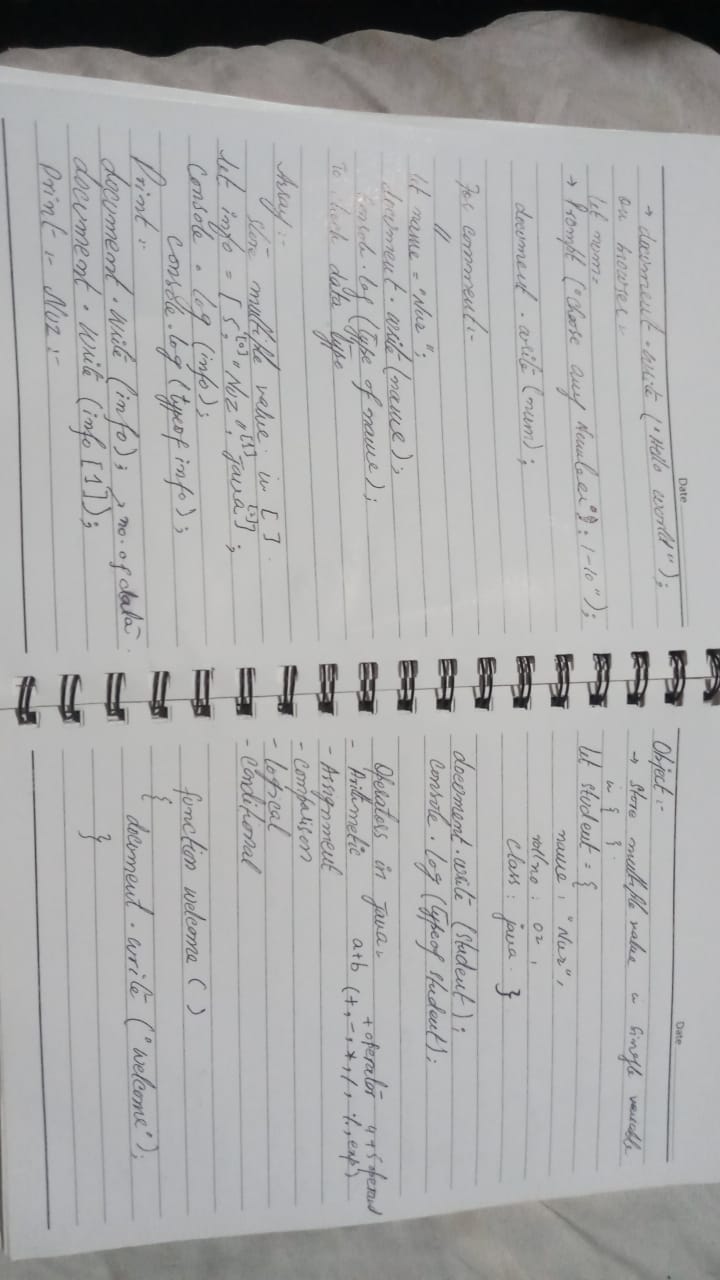 Date
→ document.write ("Hello world");
on browser:-
let num=
→ Prompt ("choose any Number": 1-10");
document.write (num);
For comment:-
//
let name = "Nur";
document.write (name);
console.log (type of name);
To check data type
Array:-
Store multiple value in [ ].
let info = [5, "Nur", java];
[0] [1] [2]
console.log (info);
console.log (typeof info);
Print:-
document.write (info); → no. of data.
document.write (info [1]);
Print:- Nur:-
Date
Object:-
→ Store multiple value in single variable
in { }.
let student = {
name: "Nur",
roll no: 02,
class: java. }
document.write (student);
console.log (typeof student);
Operators in java:- + operator 4+5 operand
- Arithmetic a+b (+, -, *, /, %, exp)
- Assignment
- Comparison
- Logical
- Conditional
function welcome ( )
{
document.write ("welcome");
}